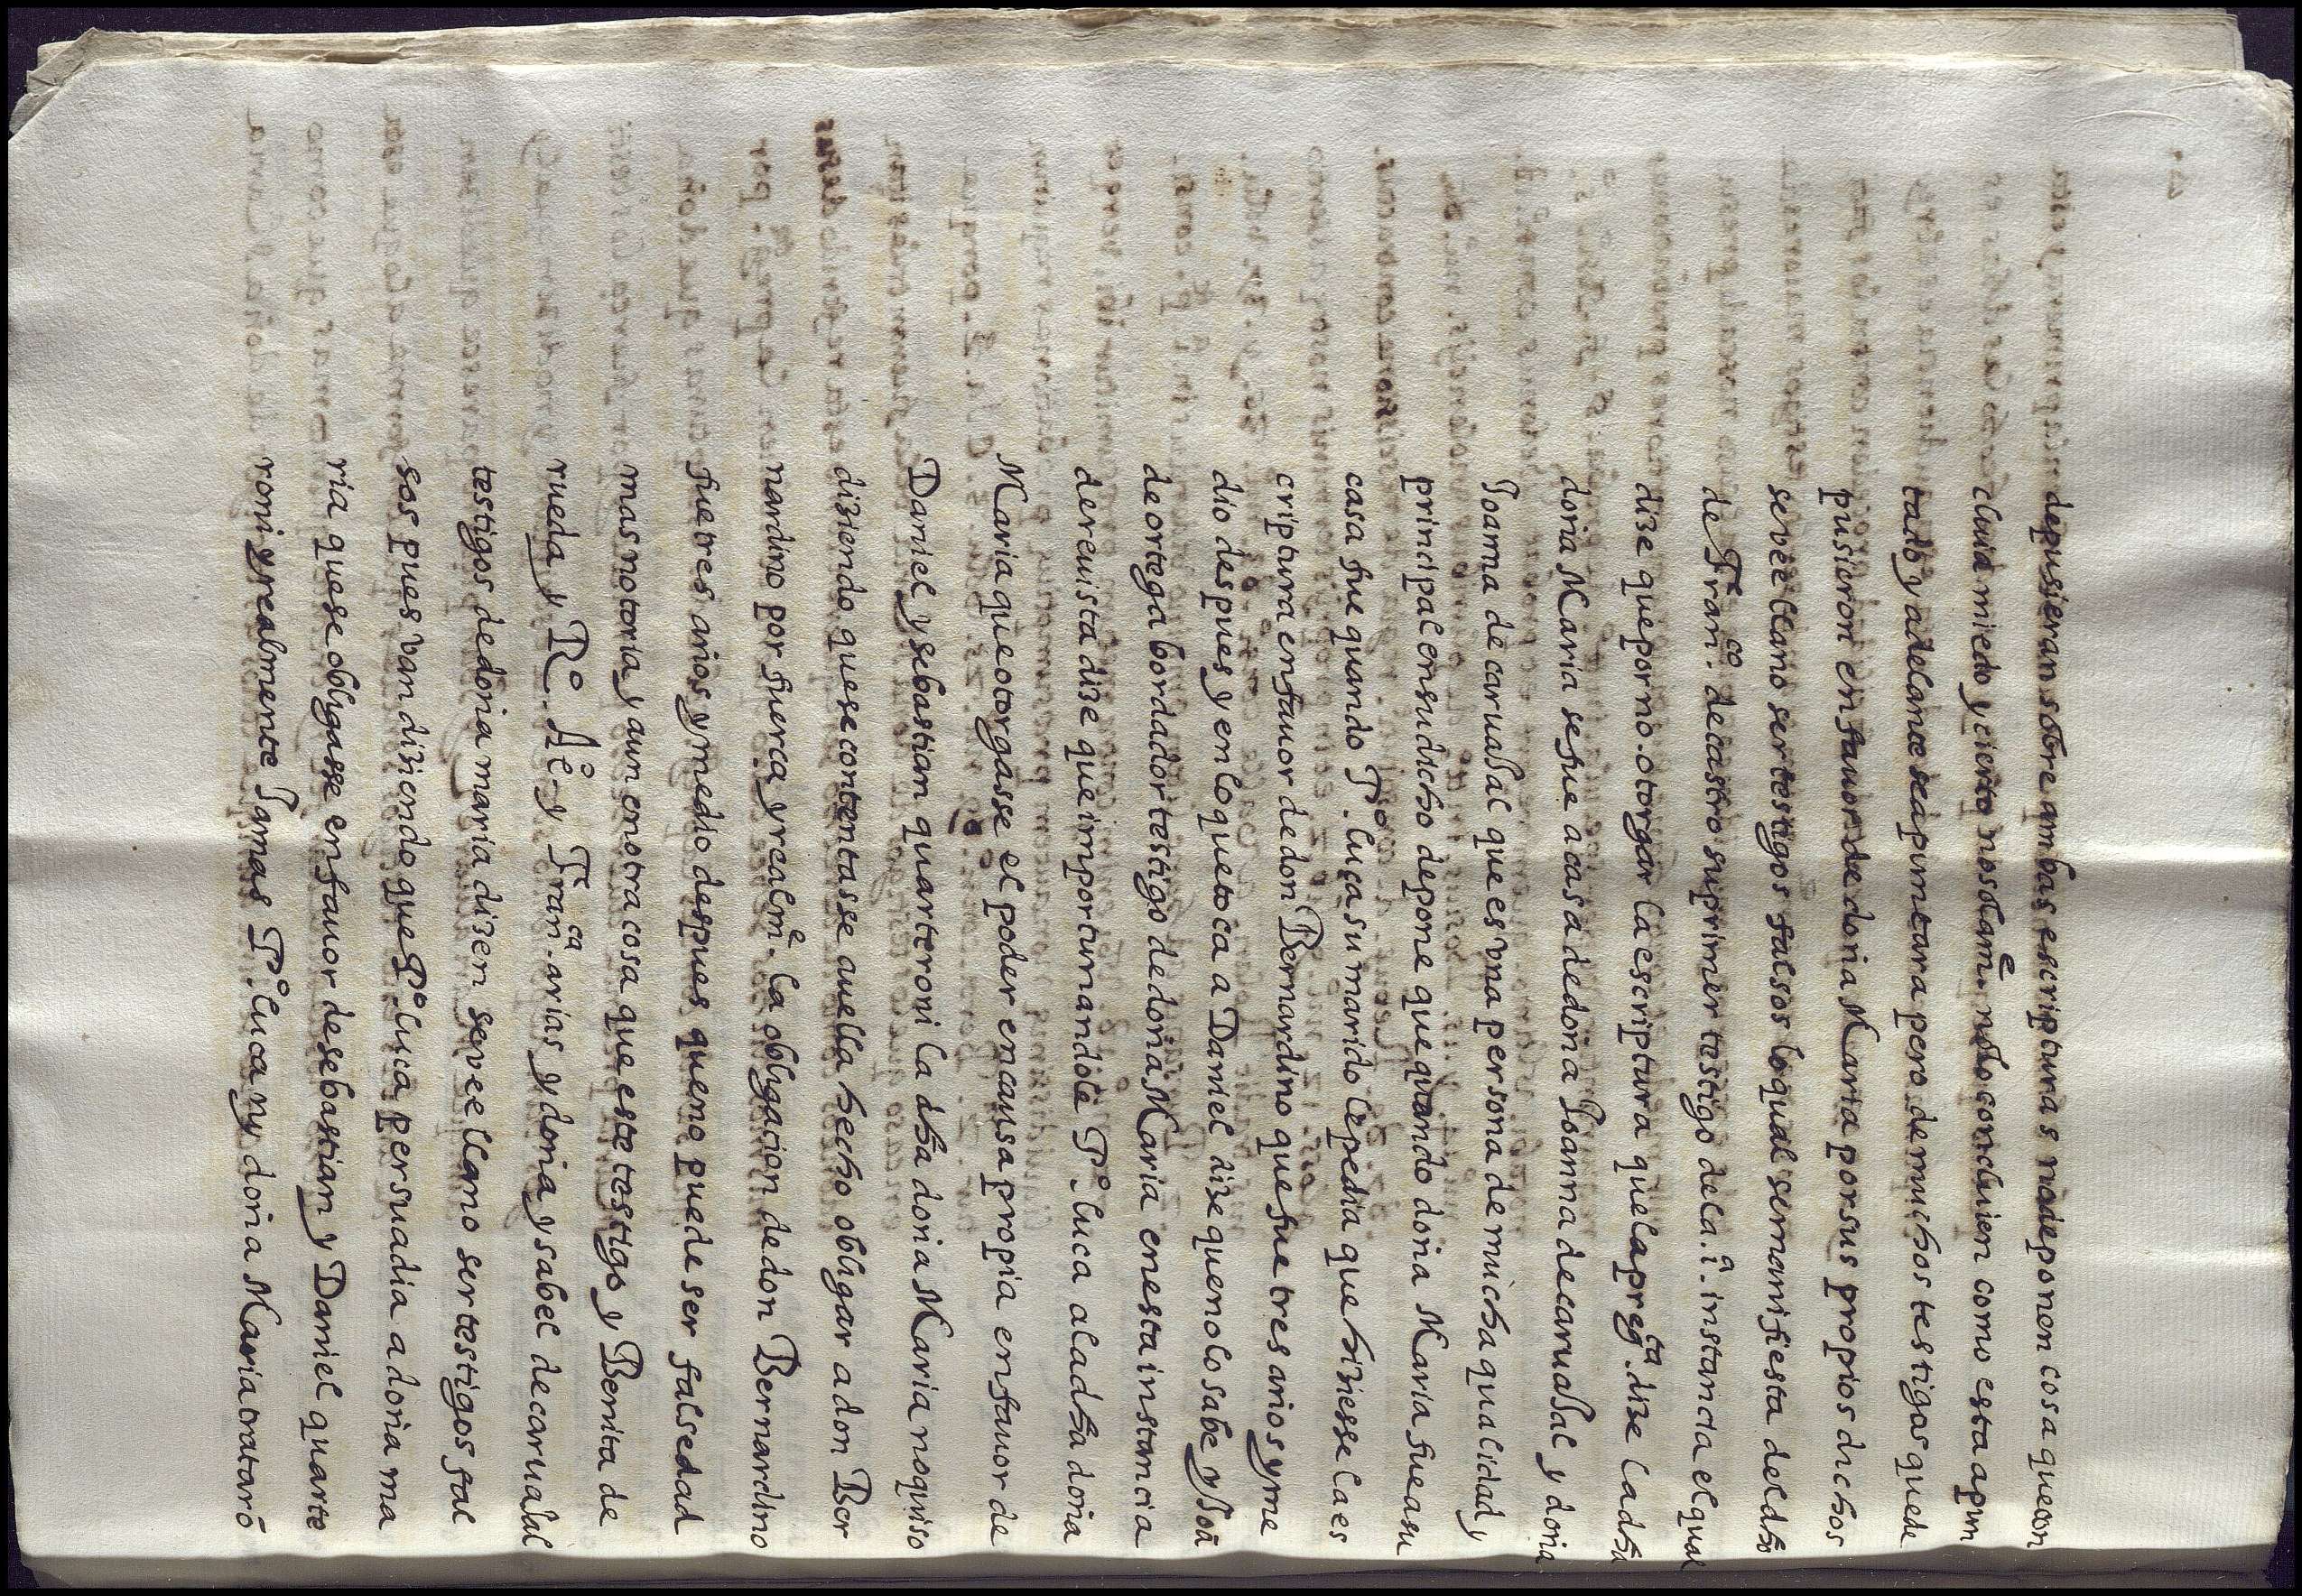 depusieran sobre ambas escripturas no deponen cosa que con
cluia miedo y cierto no solam.e no lo concluien como esta apun
tado y adelante se apuntara pero de muchos testigos que de
pusieron en fauor de doña Maria por sus propios dichos
se vee llano ser testigos falsos lo qual se manifiesta del dho
de Fran.co de castro su primer testigo de la .1a. instancia el qual
dize que por no otorgar la escriptura que la preg.ta dize la dha
doña Maria se fue a casa de doña Joanna de caruaJal y doña
Joanna de caruaJal que es vna persona de mucha qualidad y
principal en su dicho depone que quando doña Maria fue a su
casa fue quando P.o luca su marido le pedia que hiziesse la es
criptura en fauor de don Bernardino que fue tres años y me
dio despues y en lo que toca a Daniel dize que no lo sabe y Joā
de ortega bordador testigo de doña Maria en esta instancia
de reuista dize que importunandole P.o luca a la dha doña
Maria que otorgasse el poder en causa propia en fauor de
Daniel y sebastian quarteroni la dha doña Maria no quiso
diziendo que se contentasse auella hecho obligar a don Ber
nardino por fuerca y realm.e la obligacion de don Bernardino
fue tres años y medio despues que no puede ser falsedad
mas notoria y aun en otra cosa que este testigo y Benita de
rueda y R.o Al.o y Fran.ca arias y doña ysabel de caruaJal
testigos de doña maria dizen se vee llano ser testigos fal
sos pues van diziendo que P.o luca persuadia a doña ma
ria que se obligasse en fauor de sebastian y Daniel quarte
roni y realmente Jamas P.o luca ny doña Maria trataró